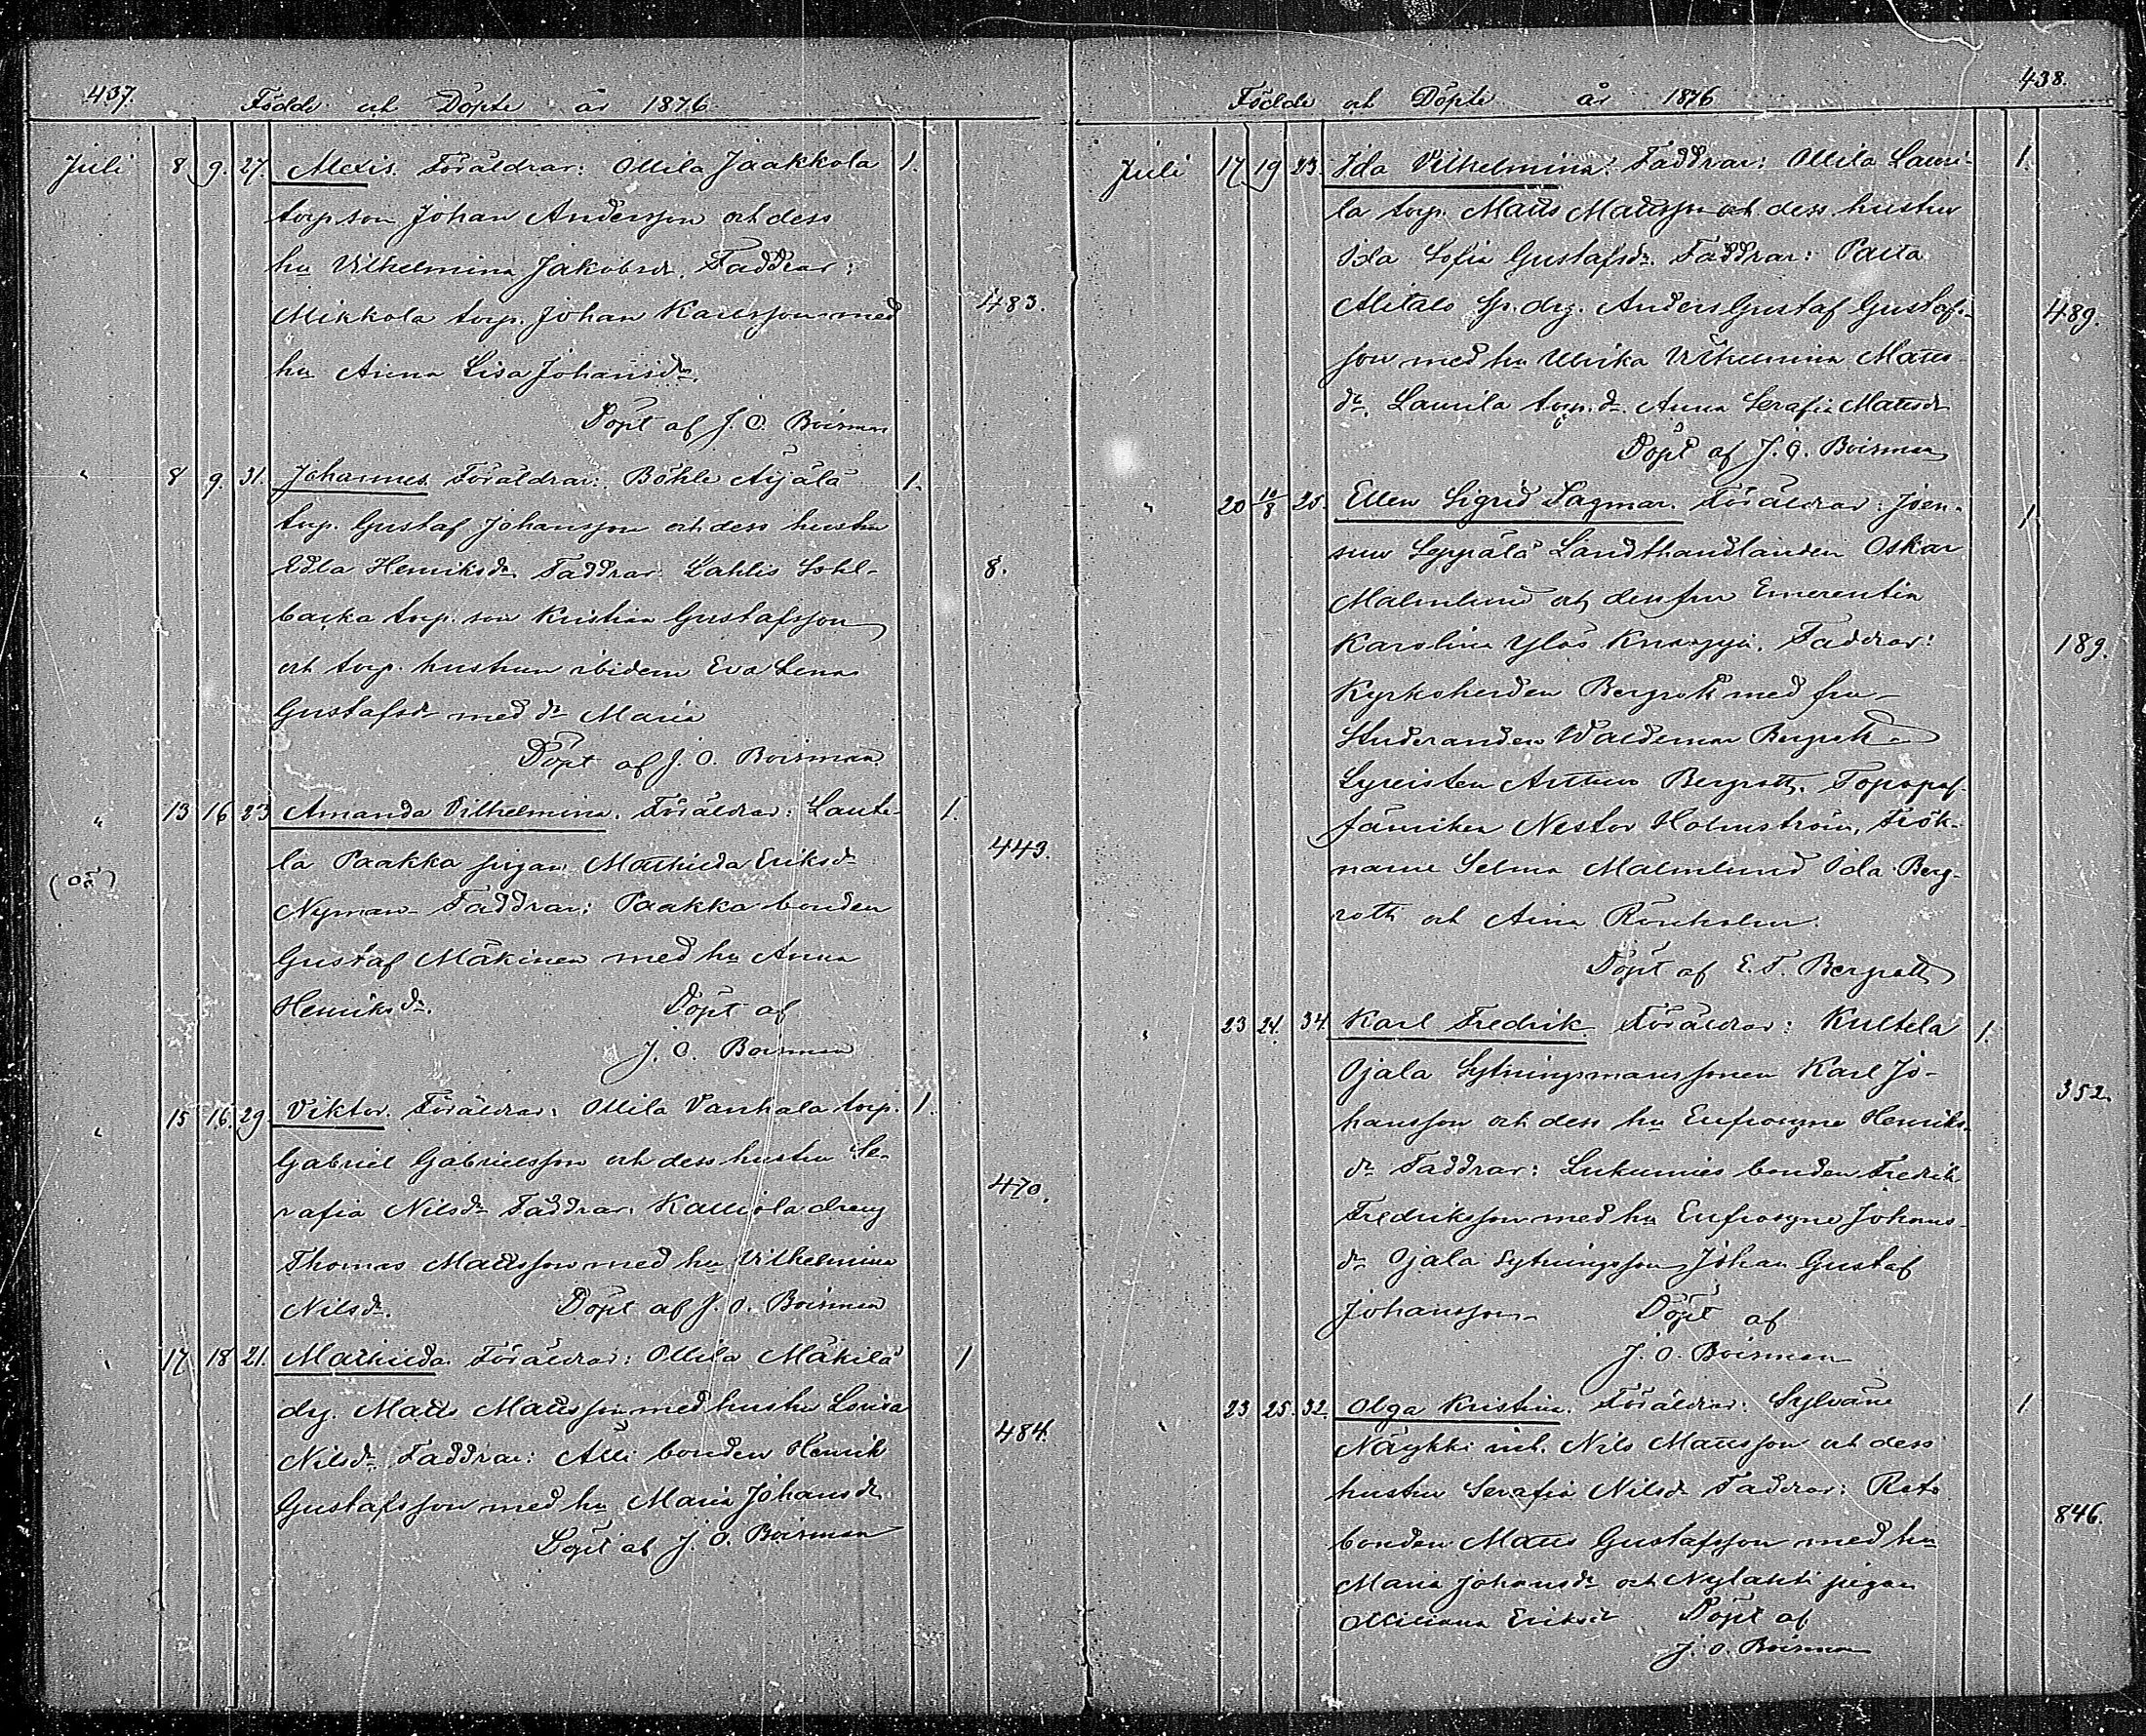 437.
Födde och Döpte år 1876.
Juli 8 9. 27. Alexis. Föräldrar: Ollila Jaakkola 1.
torp.son Johan Andersson och dess
hu Vilhelmina Jakobsdr. Faddrar:
Mikkola torp. Johan Karlsson med 483.
hu Anna Lisa Johansdr.
Döpt af J. O. Boisman
" 8 9. 31. Johannes. Föräldrar: Böhle Äijälä 1.
torp. Gustaf Johansson och dess hustru
Edla Henriksdr. Faddrar: Lahlis Sohl- 8.
backa torp. son Kristian Gustafsson
och torp. hustrun ibidem Eva Lena
Gustafsdr med dr Maria
Döpt af J. O. Boisman
" 13 16 23 Amanda Vilhelmina. Föräldrar: Laute- 1.
(oä) la Paakka pigan Mathilda Eriksdr 443.
Nyman. Faddrar: Paakka bonden
Gustaf Mäkinen med hu Anna
Henriksdr. Döpt af
J. O. Boisman
" 15 16. 29. Viktor. Föräldrar: Ollila Vanhala torp. 1.
Gabriel Gabrielsson och dess hustru Se-
rafia Nilsdr Faddrar: Kalliola dreng 470.
Thomas Mattsson med hu Vilhelmina
Nilsdr. Döpt af J. O. Boisman
" 17 18 21. Mathilda. Föräldrar: Ollila Mäkilä 1
drg. Matts Mattsson med hustru Lovisa
Nilsdr. Faddrar: Alli bonden Henrik 484.
Gustafsson med hu Maria Johansdr
Döpt af J. O. Boisman
438.
Födde och Döpte år 1876
Juli 17 19 23. Ida Vilhelmina. Faddrar: Ollila Lauri- 1.
la torp. Matts Mattsson och dess hustru
Ida Sofia Gustafsdr. Faddrar: Palta
Alitalo drg. Anders Gustaf Gustafs- 489.
son med hu Ulrika Vilhelmina Matts-
dr. Laurila torp. dr Anna Serafia Mattsdr
Döpt af J. O. Boisman
" 20 10/8 25. Ellen Sigrid Dagmar. Föräldrar: Joen- 1
suu Seppälä Landthandlanden Oskar
Malmlund och dess fru Emerentia
Karolina Ylös Knaappi. Faddrar: 189.
Kyrkoherden Bergroth med fru
Studeranden Waldemar Bergroth
Lyceisten Arthur Bergroth. Topograf-
fänriken Nestor Holmström, Frök-
narne Selma Malmlund Ida Berg-
roth och Aina Rönholm.
Döpt af E. T. Bergroth
" 23 24. 34 Karl Fredrik Föräldrar: Kultela 1.
Ojala Sytningsmanssonen Karl Jo-
hansson och dess hu Eufrosyne Henriks- 352.
dr Faddrar: Lukumies bonden Fredrik
Fredriksson med hu Eufrosyne Johans-
dr Ojala Sytningsson Johan Gustaf
Johansson Döpt af
J. O. Boisman
" 23 25. 32. Olga Kristina. Föräldrar: Sylväne 1
Näykki Nils Mattsson och dess
hustru Serafia Nilsdr Faddrar: Rato
bonden Matts Gustafsson med hu 846.
Maria Johansdr och Nylahti pigan
Miliana Eriksdr Döpt af
J. O. Boisman